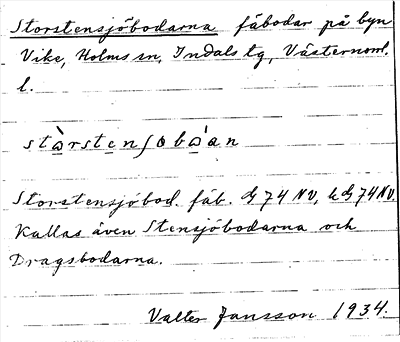 Storstensjöbodarna fäbodar på byn
Vike, Holms sn, Indals tg, Västernorrl.
l.
Storstensjöbod. fäb. G 74 NV, k G 74 NV.
Kallas även Stensjöbodarna och
Dragsbodarna.
Valter Jansson 1934.